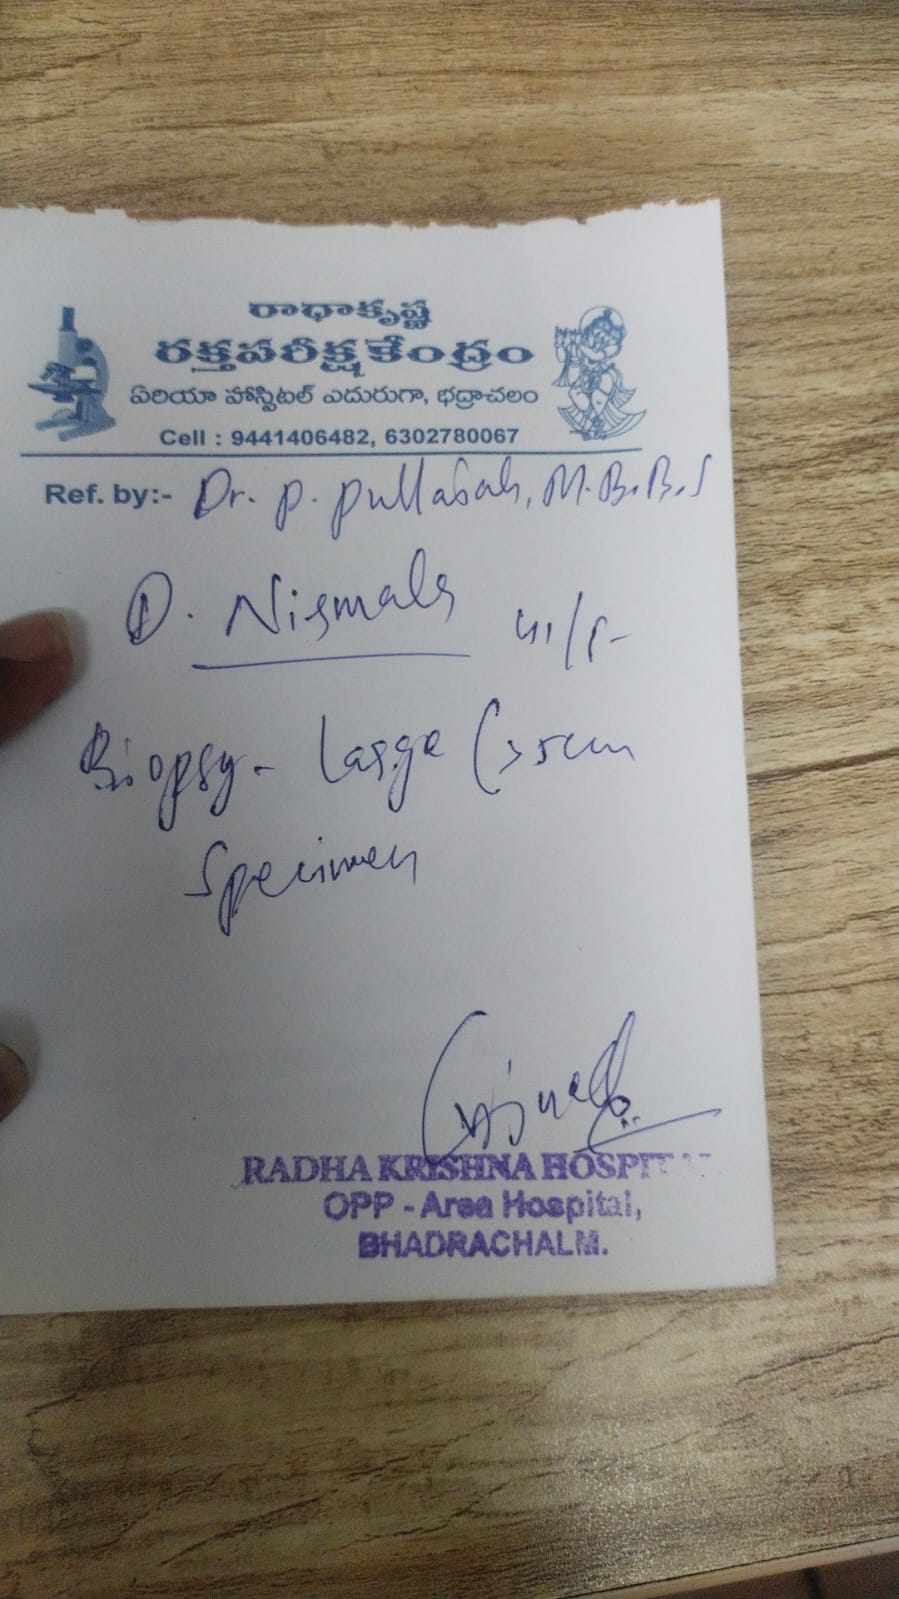 రాధాకృష్ణ
రక్తపరీక్ష కేంద్రం
ఏరియా హాస్పిటల్ ఎదురుగా, భద్రాచలం
Cell : 9441406482, 6302780067
Ref. by:- Dr. P. Pullaiah, M.B.B.S
D. Nirmala
Biopsy - Large (>5cm
Specimen
RADHA KRISHNA HOSPITAL
OPP - Area Hospital,
BHADRACHALM.